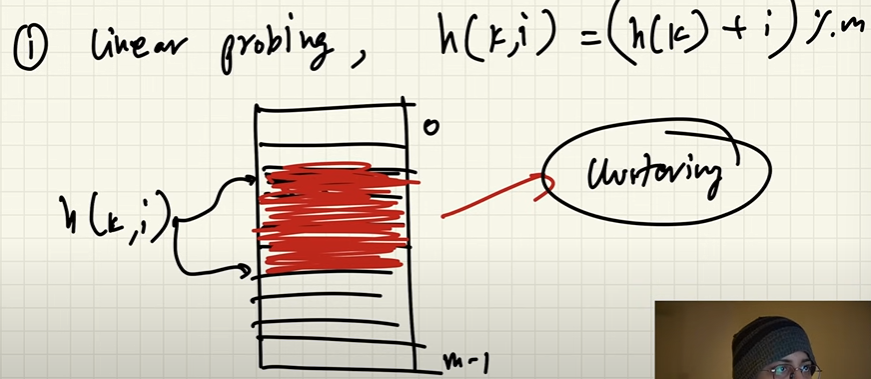 ① linear probing, h(k,i) = (h(k) + i) %m
0
h(k,i)
Clustering
m-1